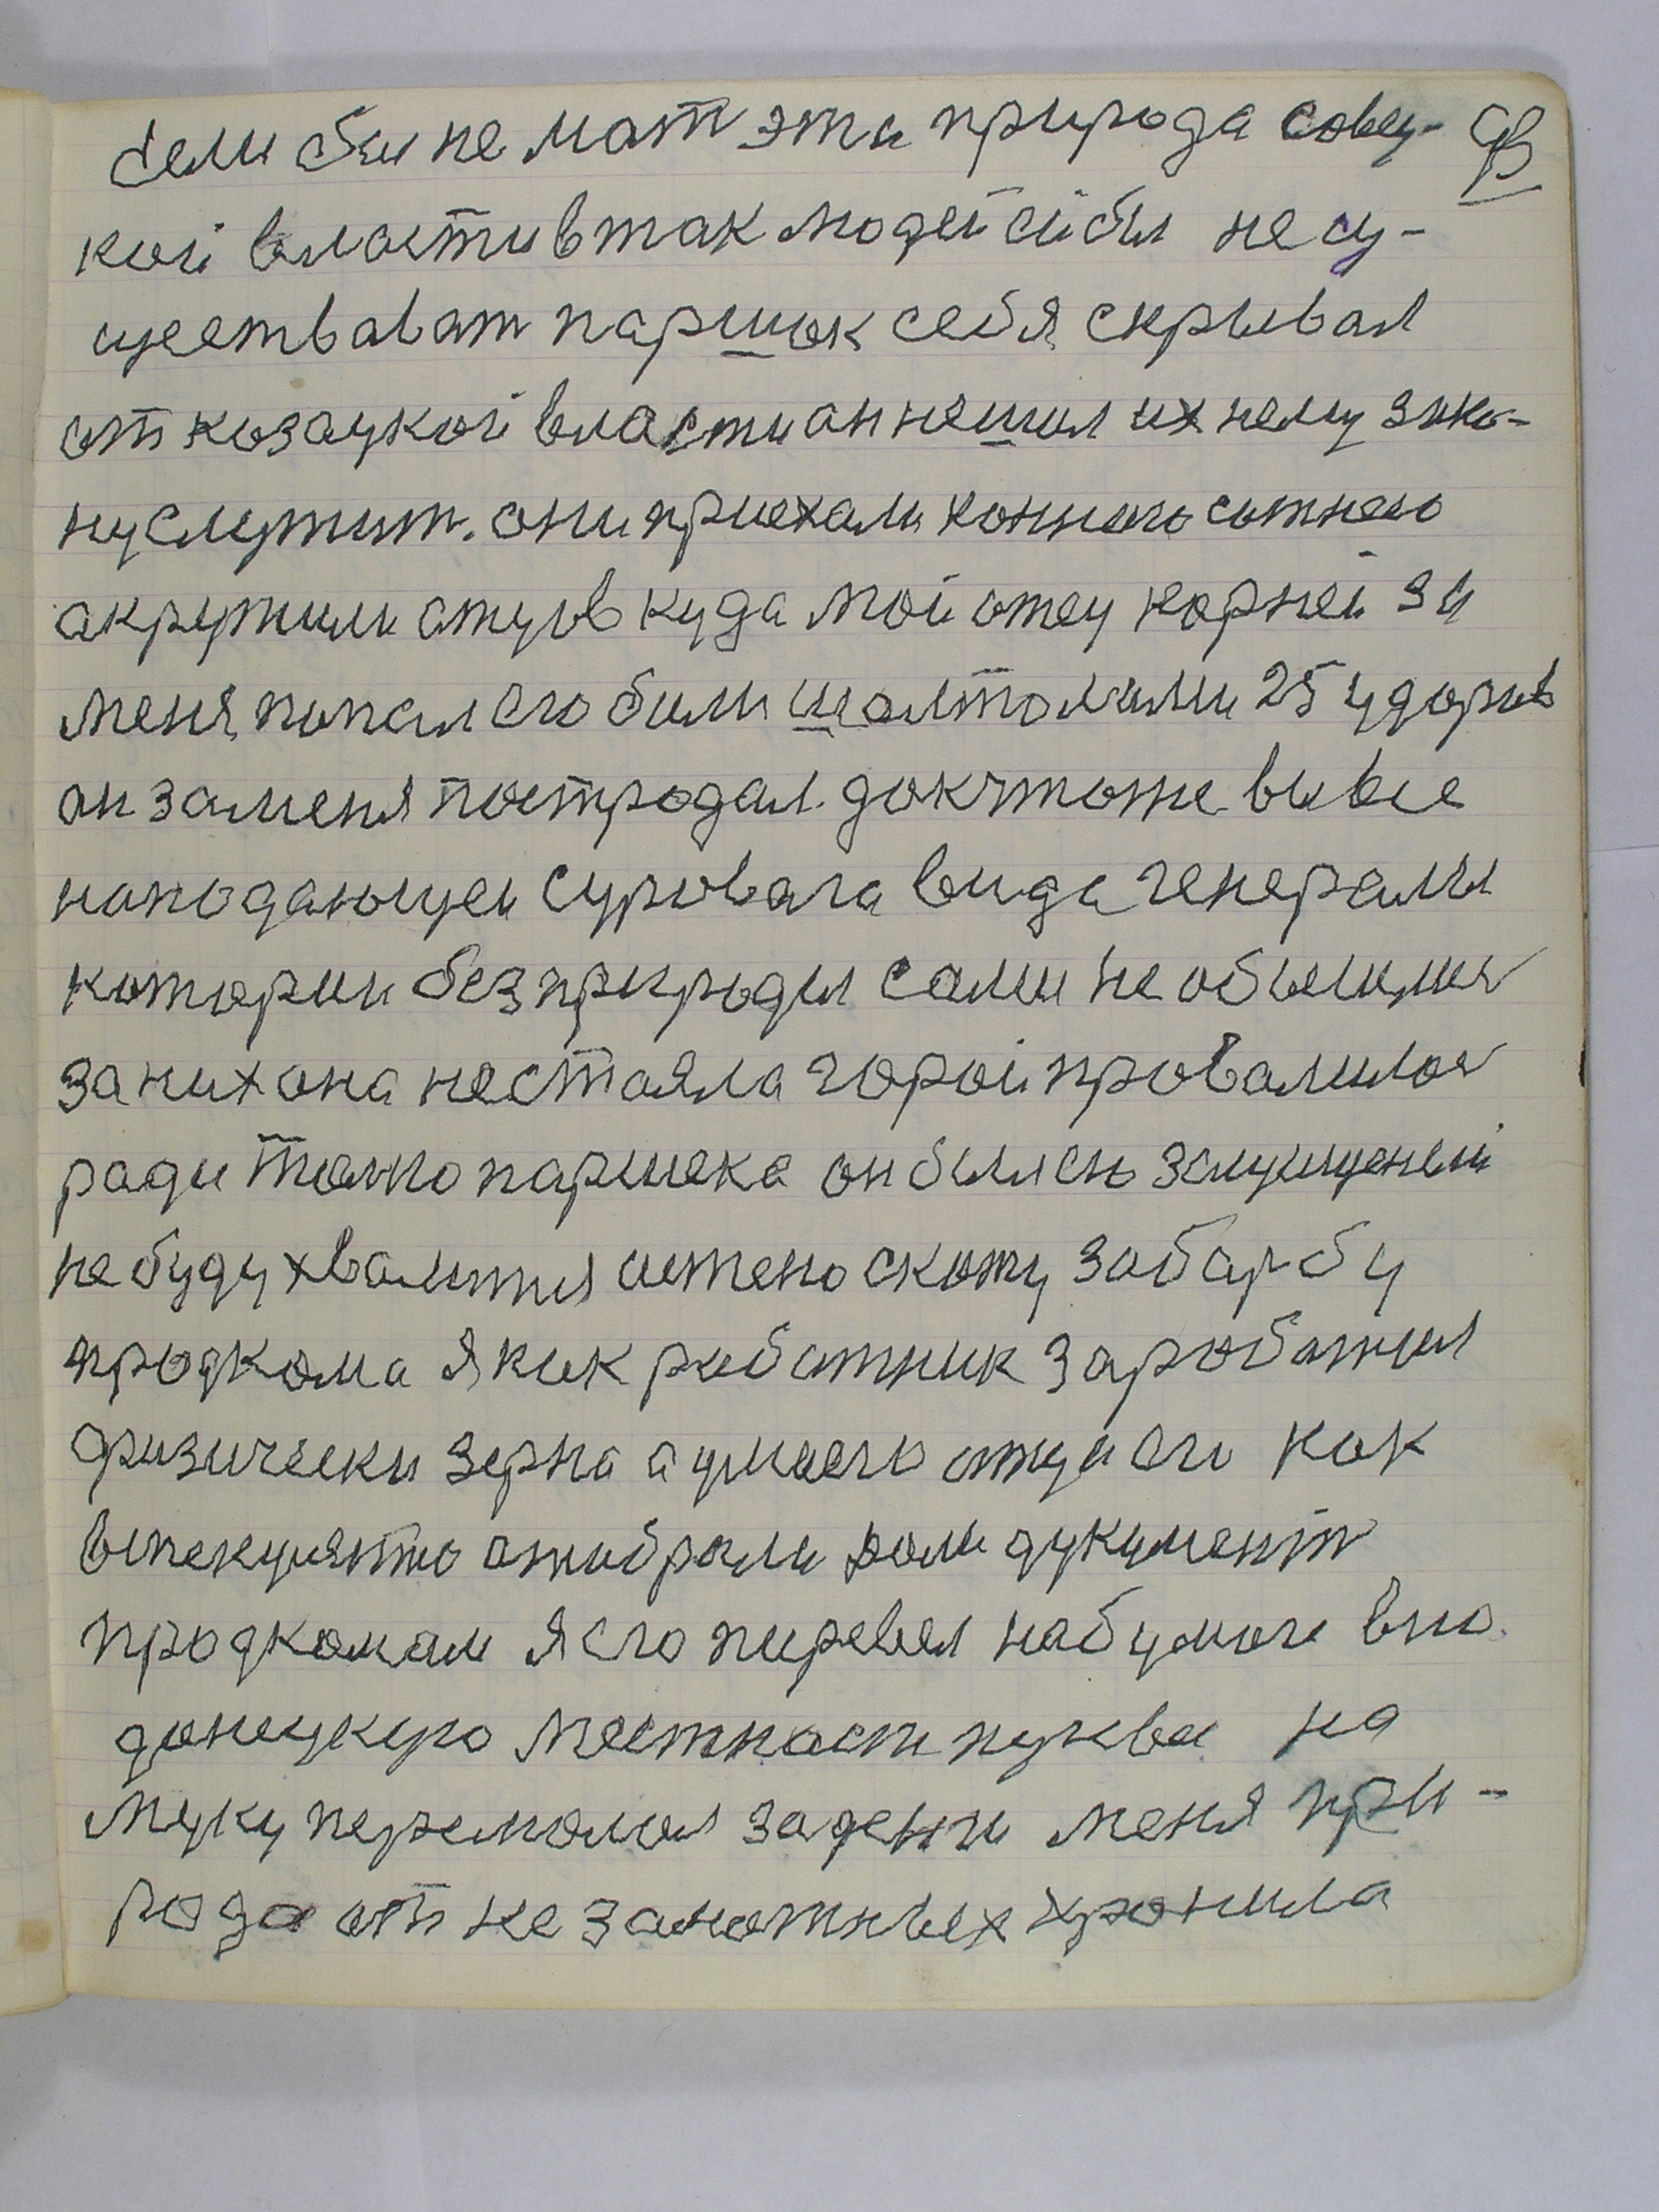 если бы не мат эта природа совец-
кой власти втак людей ей бы не су-
ществават паршок себя скрывал
от козацкой власти он нешол ихнему зако-
ну служит. они приехали конною сотнею
акружили отцов куда мой отец корней за
меня попал его били шомполами 25 ударов
он заменя пострадал. дак чтоже вы все
нападающеи суровага вида генералы
которыи без природы сами не обышлися
за них она нестаяла горой провалился
ради таково паршека он был ею защищеный
не буду хвалится истено скожу за барбу
продкома я как работник заработал
физически зерна а умоего отца его как
втекущято атабрали дали дукумент
продкомам я его перевел на бумоги вна
донецкую местнаст пуква на
муку перемолол заденги меня при-
рода от незаконных хронила